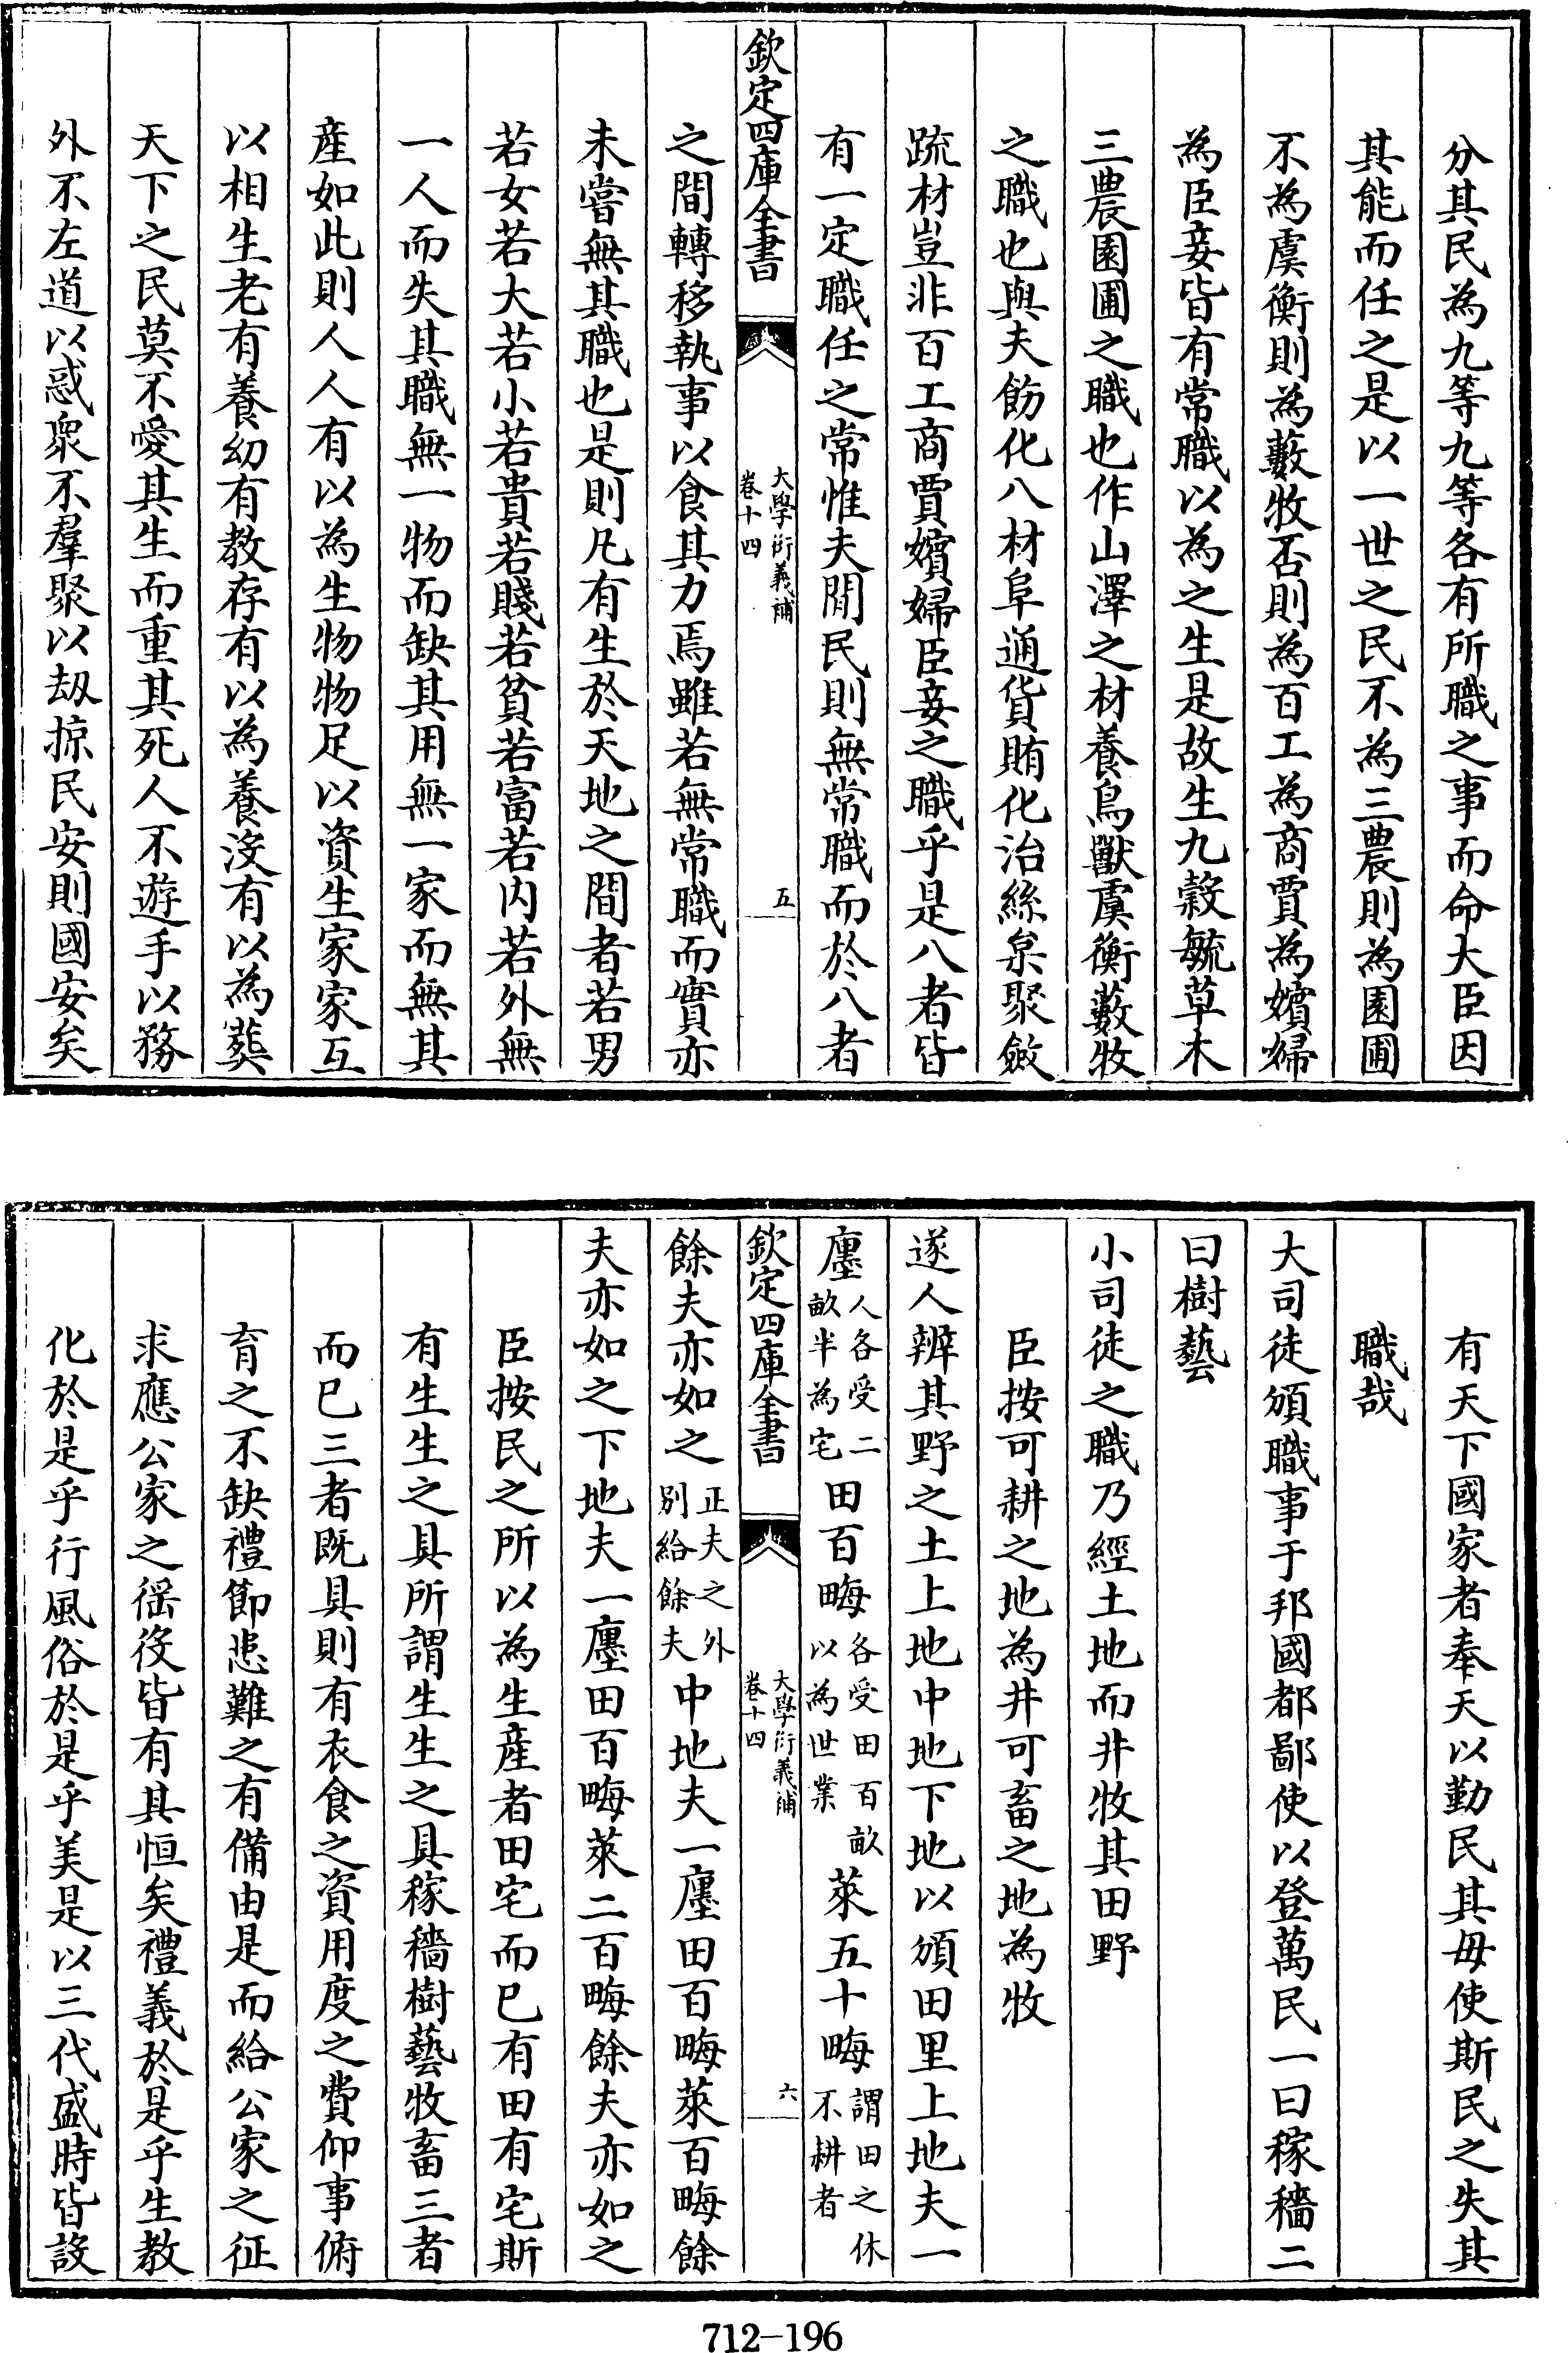 分其民為九等九等各有所職之事而命大臣因
其能而任之是以一世之民不為三農則為園圃
不為虞衡則為藪牧否則為百工為商賈為嬪婦
為臣妾皆有常職以為之生是故生九穀毓草木
三農園圃之職也作山澤之材養鳥獸虞衡藪牧
之職也與夫飭化八材阜通貨賄化治絲枲聚斂
疏材豈非百工商賈嬪婦臣妾之職乎是八者皆
有一定職任之常惟夫閒民則無常職而於八者
欽定四庫全書
大學衍義補
卷十四
五
之間轉移執事以食其力焉雖若無常職而實亦
未嘗無其職也是則凡有生於天地之間者若男
若女若大若小若貴若賤若貧若富若内若外無
一人而失其職無一物而缺其用無一家而無其
産如此則人人有以為生物物足以資生家家互
以相生老有養幼有教存有以為養沒有以為葬
天下之民莫不愛其生而重其死人不遊手以務
外不左道以惑衆不羣聚以刼掠民安則國安矣
有天下國家者奉天以勤民其毋使斯民之失其
職哉
大司徒頒職事于邦國都鄙使以登萬民一曰稼穡二
曰樹藝
小司徒之職乃經土地而井牧其田野
臣按可耕之地為井可畜之地為牧
遂人辨其野之土上地中地下地以頒田里上地夫一
廛人各受二畝半為宅田百畮各受田百畝以為世業萊五十畮謂田之休不耕者
欽定四庫全書
大學衍義補
卷十四
六
餘夫亦如之正夫之外别給餘夫中地夫一廛田百畮萊百畮餘
夫亦如之下地夫一廛田百畮萊二百畮餘夫亦如之
臣按民之所以為生産者田宅而已有田有宅斯
有生生之具所謂生生之具稼穡樹藝牧畜三者
而已三者既具則有衣食之資用度之費仰事俯
育之不缺禮節患難之有備由是而給公家之征
求應公家之徭役皆有其恒矣禮義於是乎生教
化於是乎行風俗於是乎美是以三代盛時皆設
712-196